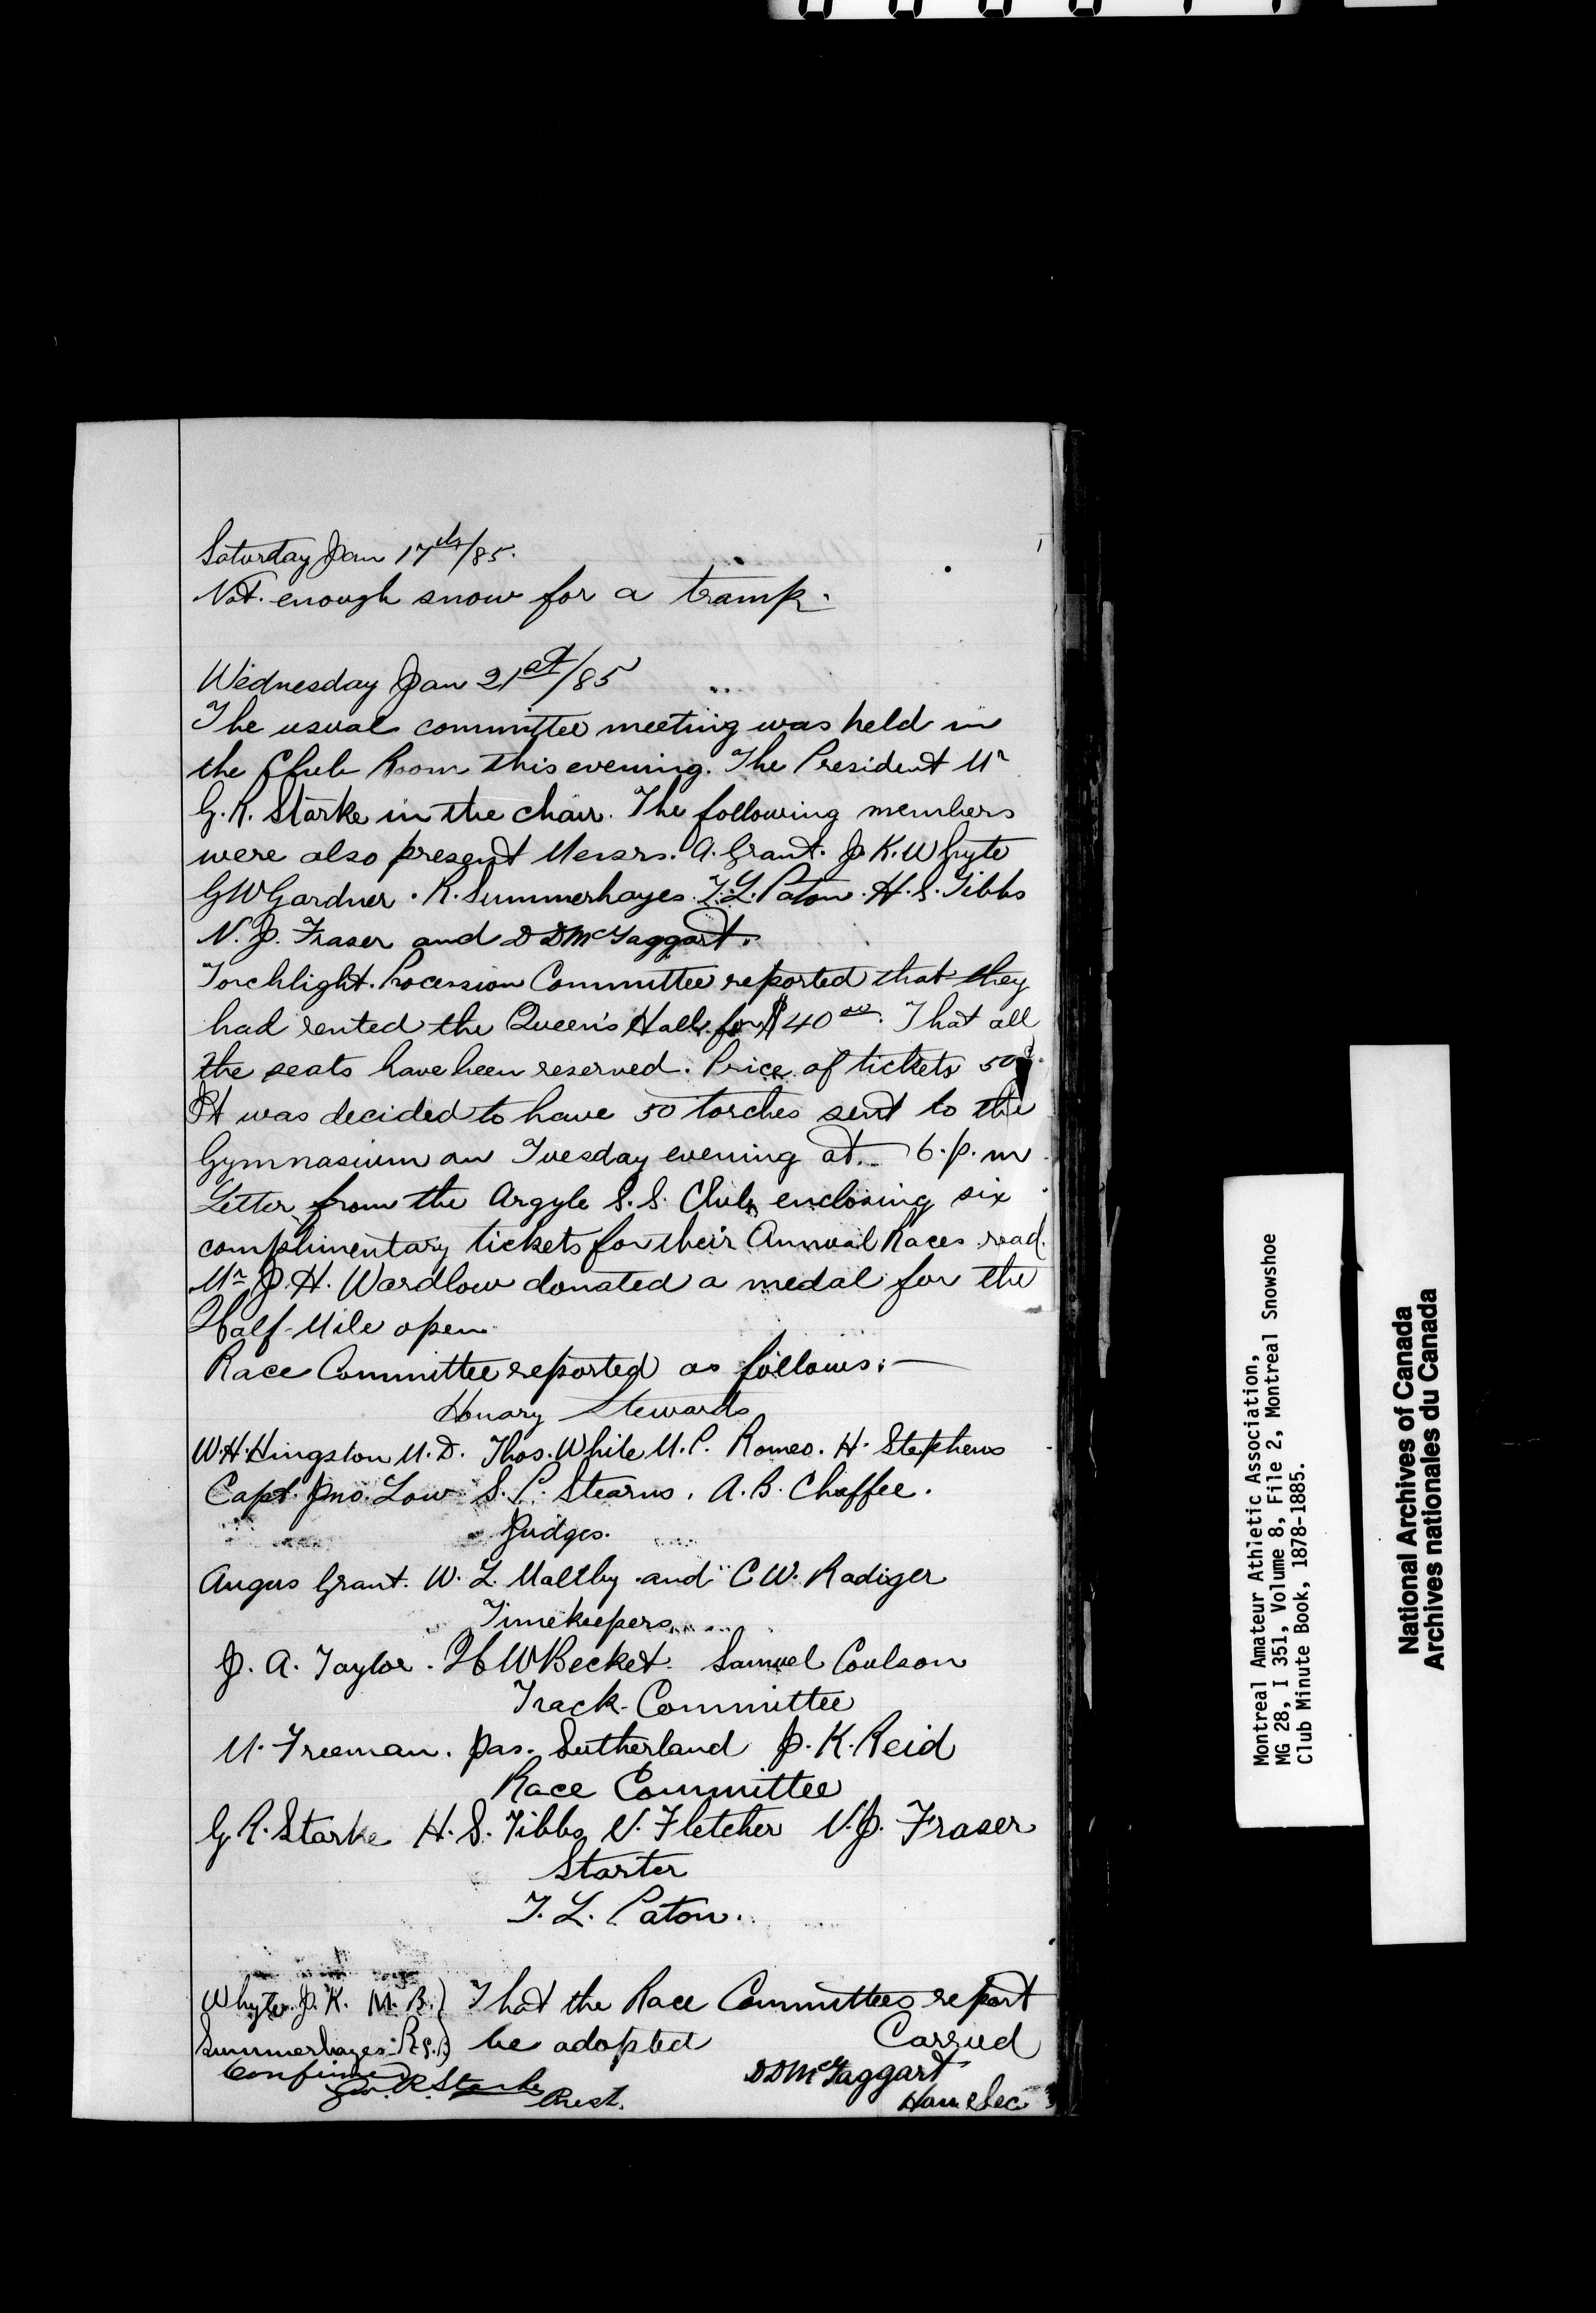 Saturday Jan 17th/85.
Not enough snow for a tramp.
Wednesday Jan 21st/85
The usual committee meeting was held in
the Club Room this evening. The President Mr
G. R. Starke in the chair. The following members
were also present Messrs. A. Grant. J. K. Whyte
G W Gardner. R. Summerhayes. T. L. Paton. H. S. Tibbs
N. J. Fraser and D D McTaggart.
Torchlight Procession Committee reported that they
had rented the Queen's Hall for $40 00. That all
the seats have been reserved. Price of tickets 50¢.
It was decided to have 50 torches sent to the
Gymnasium on Tuesday evening at 6. p. m.
Letter from the Argyle S. S. Club enclosing six
complimentary tickets for their Annual Races read.
Mr J. H. Wardlow donated a medal for the
Half-Mile open.
Race Committee reported as follows:—
Honary Stewards
W. H. Hingston M. D. Thos. White M. P. Romeo. H. Stephens
Capt. Jno. Low S. P. Stearns. A. B. Chaffee.
Judges.
Angus Grant. W. L. Maltby and C W. Radiger
Timekeepers
J. A. Taylor. H W Becket. Samuel Coulson
Track Committee
M. Freeman. Jas. Sutherland J. K. Reid
Race Committee
G. R. Starke H. S. Tibbs N. Fletcher N. J. Fraser
Starter
T. L. Paton.
Whyte J. K. M. B.) That the Race Committees report
Summerhayes R S.) be adopted Carried
Confirmed D D McTaggart
Geo. R. Starke Prest. Hon Sec
Montreal Amateur Athletic Association,
MG 28, I 351, Volume 8, File 2, Montreal Snowshoe
Club Minute Book, 1878-1885.
National Archives of Canada
Archives nationales du Canada